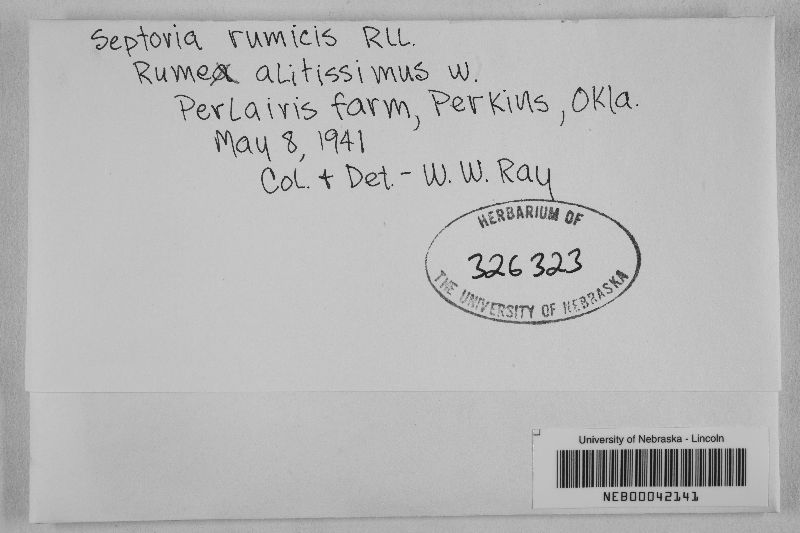 Septoria rumicis RLL.
Rumex alitissimus W.
Perlairis farm, Perkins, Okla.
May 8, 1941
Col. + Det. - W. W. Ray
HERBARIUM OF
326323
THE UNIVERSITY OF NEBRASKA
University of Nebraska - Lincoln
NEB00042141